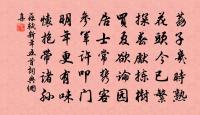 荔子幾時熟
花頭今已繁
探春先揀樹
買夏欲論園
居士常攜客
參軍許叩門
明年更有味
懷抱帶諸孫
蘇軾新年五首詞典網
集